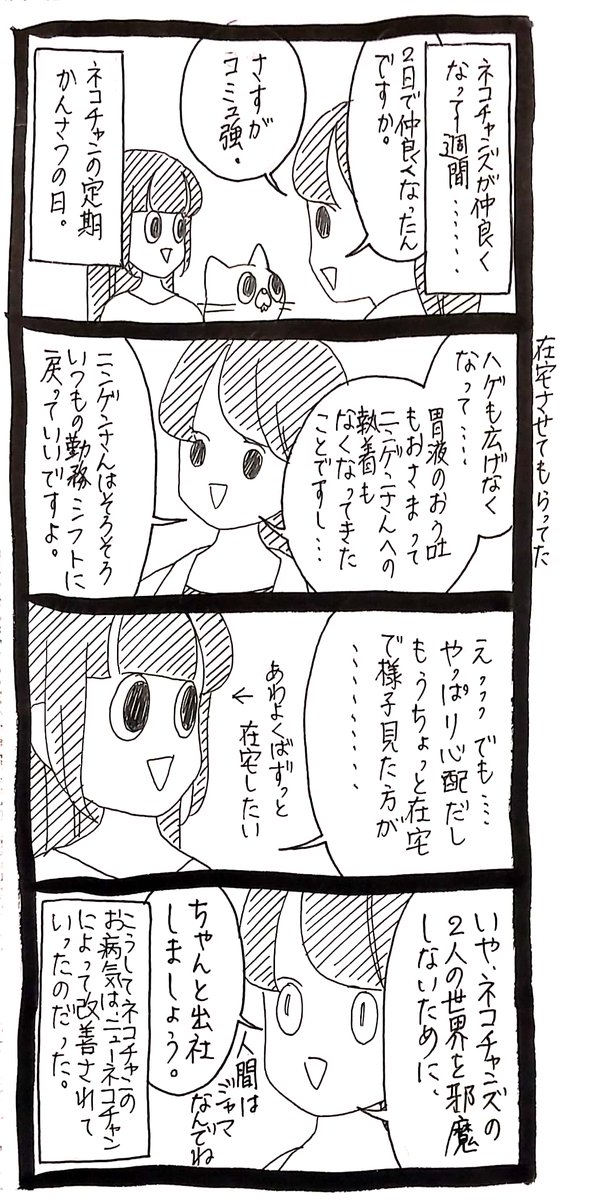 ネコチャンズが仲良く
なって1週間……
2日で仲良くなったん
ですか。
さすが
コミュ強。
ネコチャンの定期
かんさつの日。
ハゲも広げなく
なって…
胃液のおう吐
もおさまって
ニンゲンさんへの
執着も
なくなってきた
ことですし…
ニンゲンさんはそろそろ
いつもの勤務シフトに
戻っていいですよ。
在宅させてもらってた
えっっっでも…
やっぱり心配だし
もうちょっと在宅
で様子見た方が
………
あわよくばずっと
← 在宅したい
いや、ネコチャンズの
2人の世界を邪魔
しないために、
ちゃんと出社
しましょう。
人間は
ジャマ
なんでね
こうしてネコチャンの
お病気は、ニューネコチャン
によって改善されて
いったのだった。